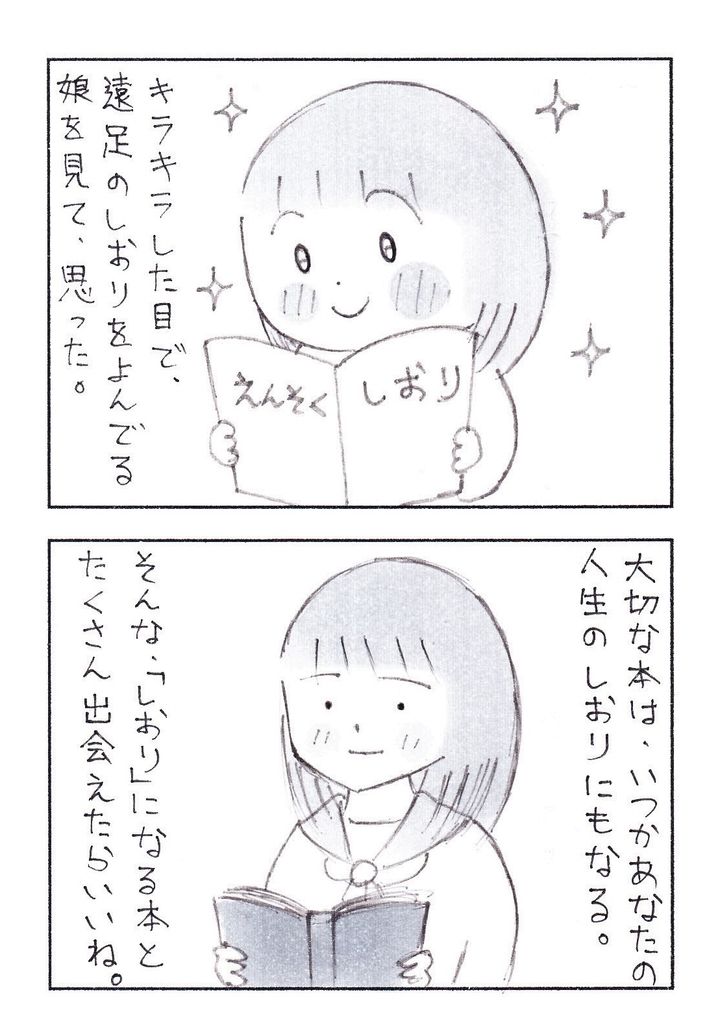 キラキラした目で、
遠足のしおりをよんでる
娘を見て、思った。
えんそく
しおり
大切な本は、いつかあなたの
人生のしおりにもなる。
そんな、「しおり」になる本と
たくさん出会えたらいいね。